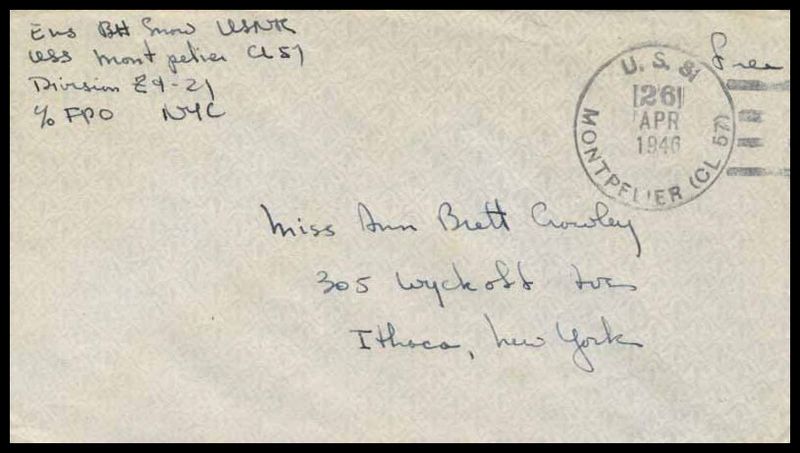 Ens BH Snow USNR
USS Montpelier CL57
Division E9-21
c/o FPO NYC
Free
U. S. S.
26
APR
1946
MONTPELIER (CL 57)
Miss Ann Brett Crowley
305 Wyckoff Ave
Ithaca, New York